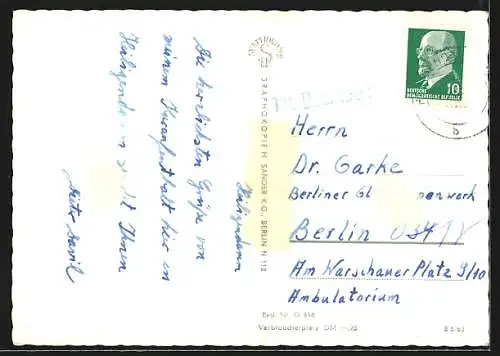 Heiligendamm
Die herzlichsten Grüße von
meinem Kuraufenthalt hier in
Heiligendamm sendet Ihnen
GRAPHOKOPIE H. SANDER K.G., BERLIN N 113
10
DEUTSCHE
DEMOKRATISCHE REPUBLIK
b
Herrn
Dr. Garke
Berliner Gl enwerk
Berlin O34
Am Warschauer Platz 9/10
Ambulatorium
Best. Nr. G
Verbraucherpreis DM